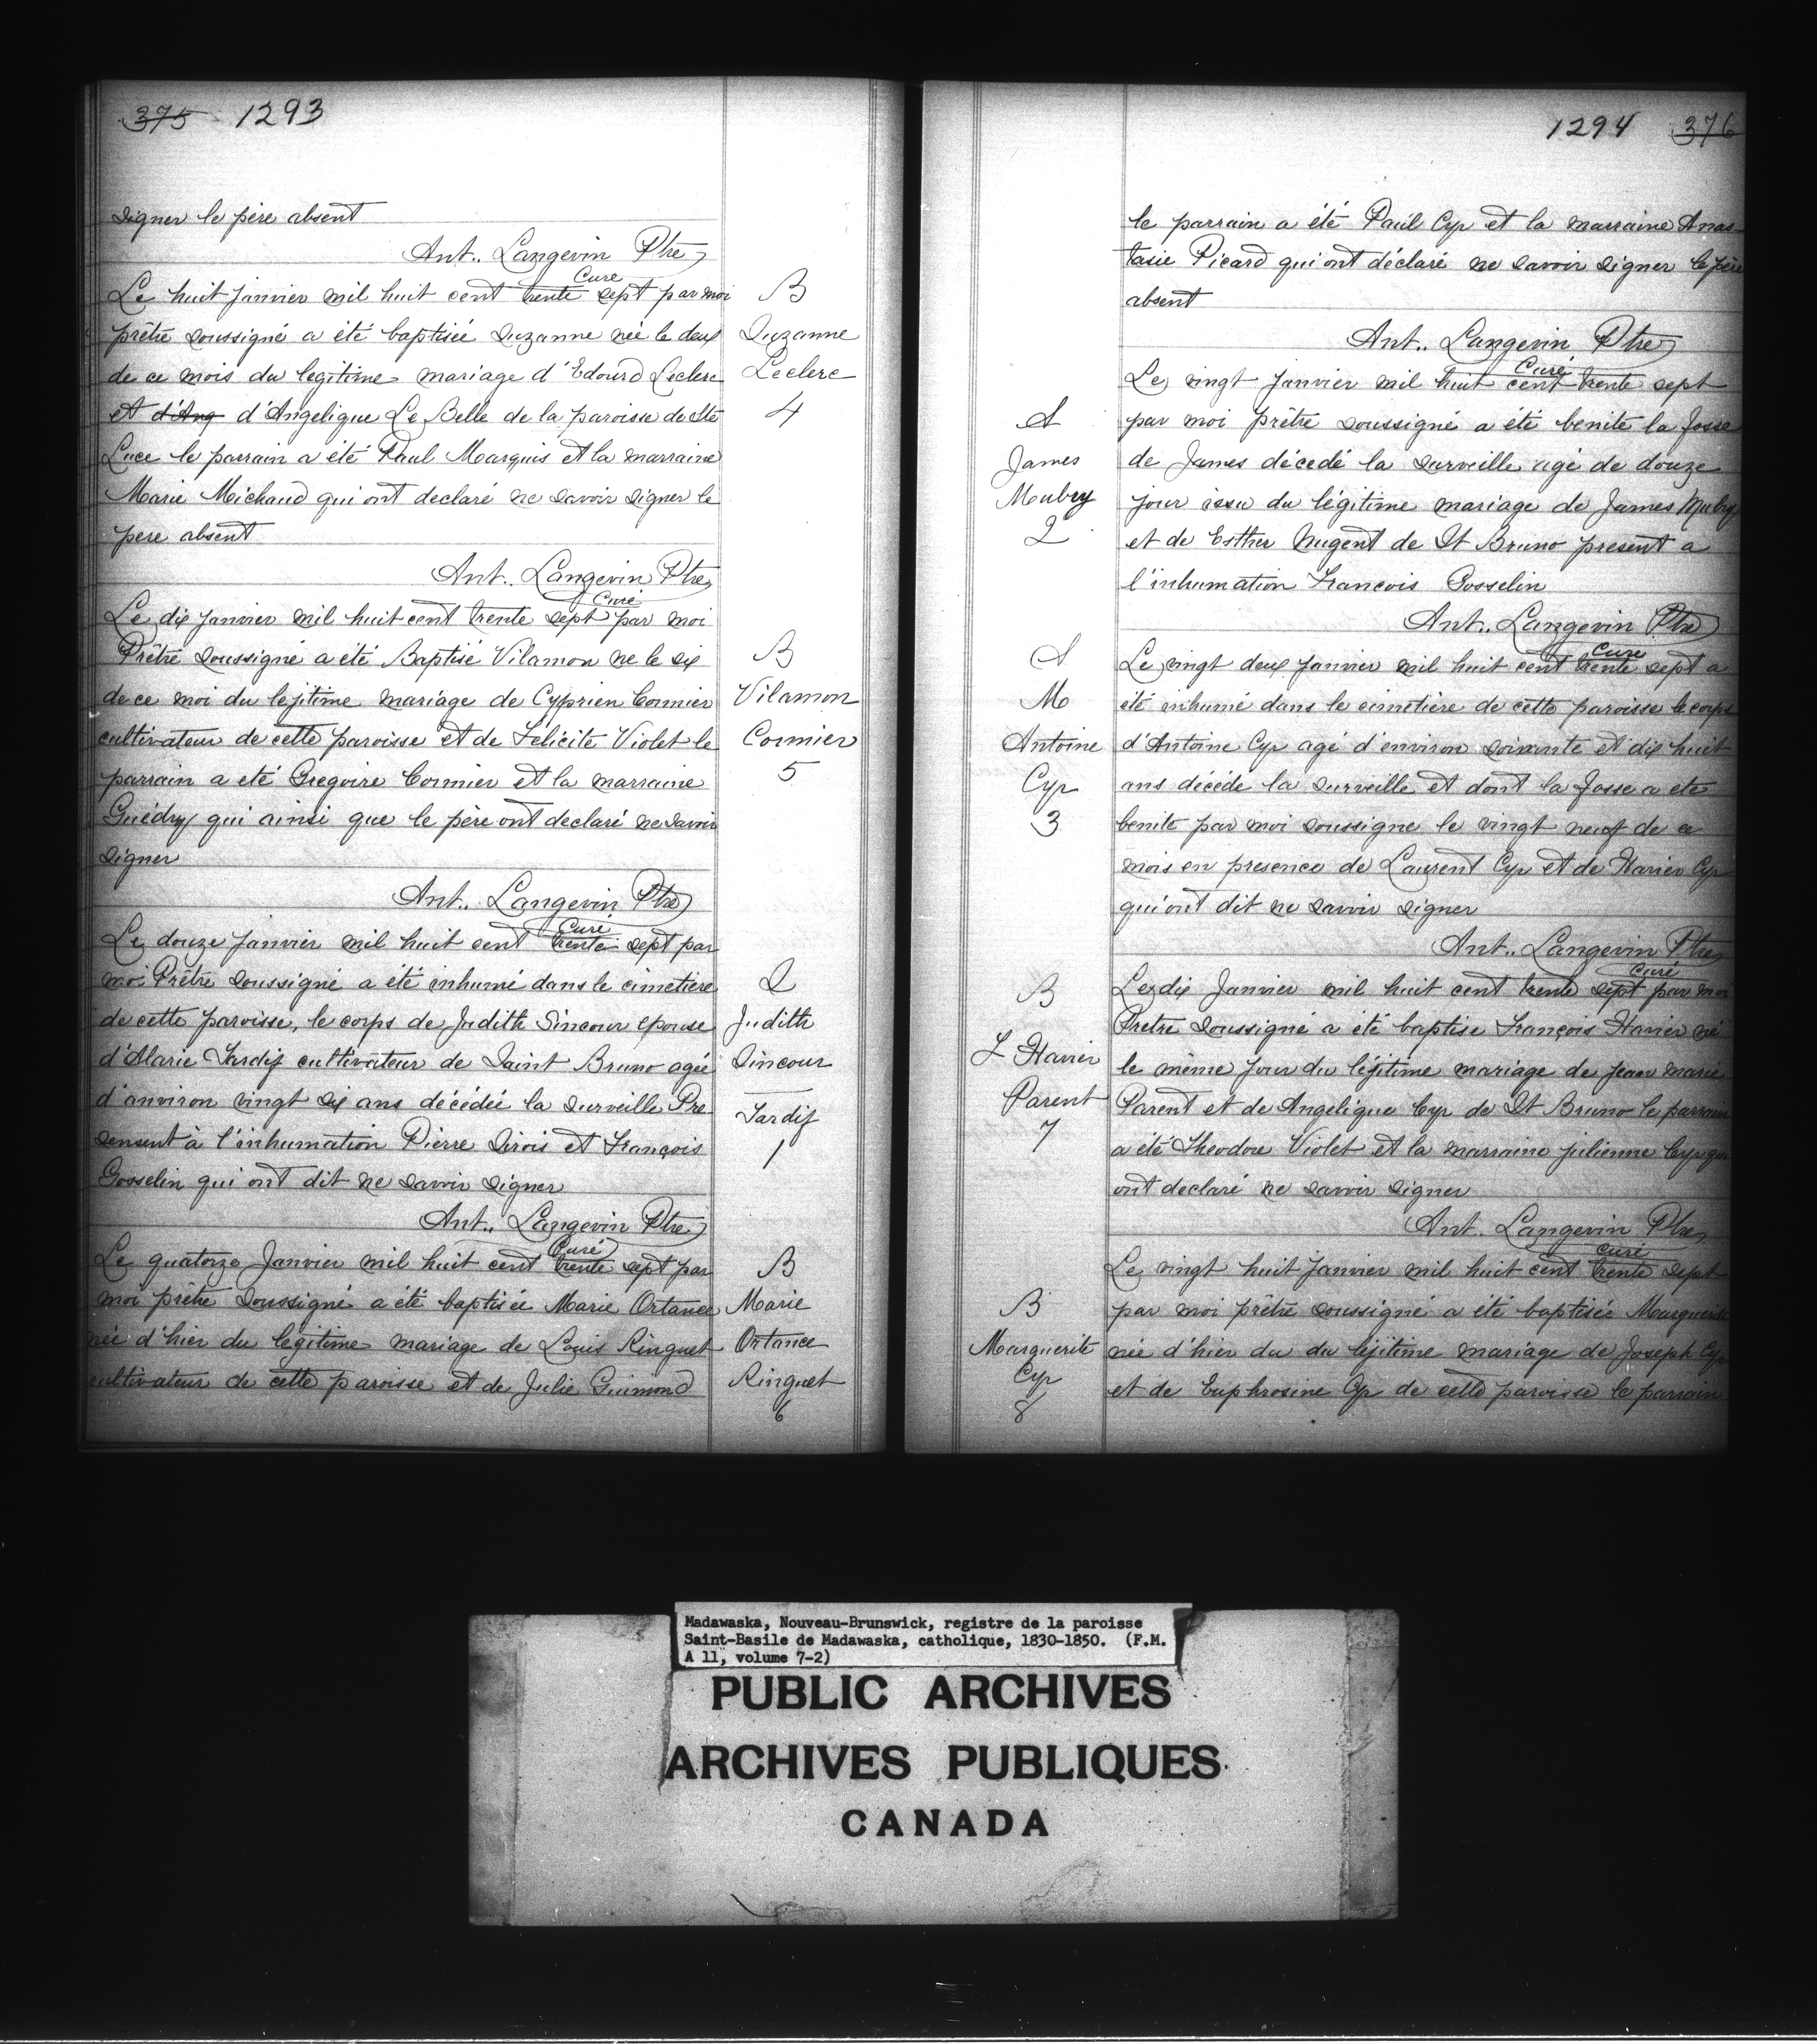 375 1293
signer le père absent
Ant.. Langevin Ptre
Curé
Le huit Janvier mil huit cent trente sept par moi
prêtre soussigné a été baptisée Suzanne née le deux
de ce mois du legitime mariage d'Edourd Leclerc
et d'Ang d'Angelique Le Belle de la paroisse de Ste
Luce le parrain a été Paul Marquis et la marraine
Marie Michaud qui ont declaré ne savoir signer le
pere absent
Ant.. Langevin Ptre
Curé
Le dix Janvier mil huit cent trente sept par moi
Prêtre soussigné a été Baptisé Vilamon ne le six
de ce moi du lejitime mariage de Cyprien Cormier
cultivateur de cette paroisse et de Felicité Violet le
parrain a eté Gregoire Cormier et la marraine
Guédry qui ainsi que le père ont declaré ne savoir
signer
Ant.. Langevin Ptre
Curé
Le douze Janvier mil huit cent trente sept par
moi Prêtre soussigné a été inhumé dans le cimetiere
de cette paroisse, le corps de Judith Sincour epouse
d'Alarie Tardif cultivateur de Saint Bruno agée
d'anviron vingt six ans décédée la surveille Pre
sensent à l'inhumation Pierre Sirois et François
Gosselin qui ont dit ne savoir signer
Ant.. Langevin Ptre
Curé
Le quatorze Janvier mil huit cent trente sept par
moi prêtre soussigné a été baptisée Marie Ortance
née d'hier du legitime mariage de Louis Ringuet
cultivateur de cette paroisse et de Julie Guimond
B
Suzanne
Leclerc
4
B
Vilamon
Cormier
5
S
Judith
Sincour
Tardif
1
B
Marie
Ortance
Ringuet
6
1294 376
le parrain a été Paul Cyr et la marraine Anas
tasie Picard qui ont déclaré ne savoir signer le père
absent
Ant.. Langevin Ptre
Curé
Le vingt Janvier mil huit cent trente sept
par moi prêtre soussigné a été benite la fosse
de James décedé la surveille agé de douze
jour issu du légitime mariage de James Mubry
et de Esther Nugent de St Bruno present a
l'inhumation Francois Gosselin
Ant.. Langevin Ptre
Curé
Le vingt deux Janvier mil huit cent trente sept a
été inhumé dans le cimetière de cette paroisse le corps
d'Antoine Cyr agé d'environ soixante et dix huit
ans décédé la surveille et dont la fosse a ete
benite par moi soussigne le vingt neuf de ce
mois en presence de Laurent Cyr et de Havier Cyr
qui ont dit ne savoir signer
Ant.. Langevin Ptre
Curé
Le dix Janvier mil huit cent trente sept par moi
Pretre soussigné a été baptise François Havier né
le même jour du léjitime mariage de Jean marie
Parent et de Angelique Cyr de St Bruno le parrain
a été Theodore Violet et la marraine julienne Cyr qui
ont declaré ne savoir signer
Ant.. Langevin Ptre
curé
Le vingt huit Janvier mil huit cent trente sept
par moi prêtre soussigné a été baptisée Marguerite
née d'hier du du lejitime mariage de Joseph Cyr
et de Euphrosine Cyr de cette paroisse le parrain
S
James
Mubry
2
S
M
Antoine
Cyr
3
B
F Havier
Parent
7
B
Marguerite
Cyr
8
Madawaska, Nouveau-Brunswick, registre de la paroisse
Saint-Basile de Madawaska, catholique, 1830-1850. (F.M.
A 11, volume 7-2)
PUBLIC ARCHIVES
ARCHIVES PUBLIQUES
CANADA